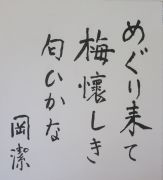 めぐり来て
梅懐しき
匂ひかな
岡潔